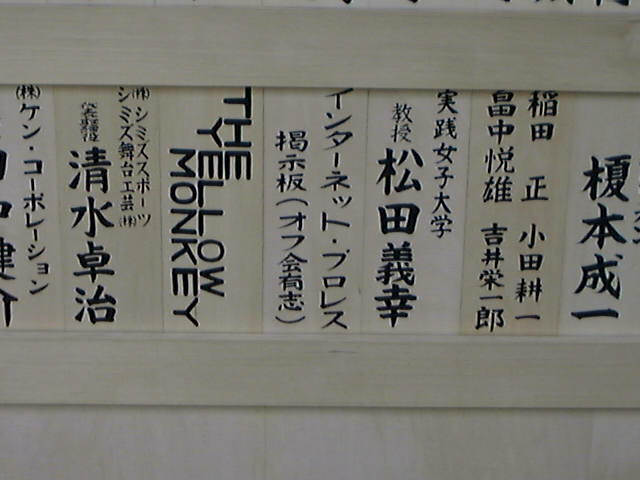 榎本成一
稲田 正 小田耕一
畠中悦雄 吉井栄一郎
実践女子大学
教授 松田義幸
インターネット・プロレス
掲示板(オフ会有志)
THE
YELLOW
MONKEY
(株)シミズスポーツ
シミズ舞台工芸(株)
清水卓治
(株)ケン・コーポレーション